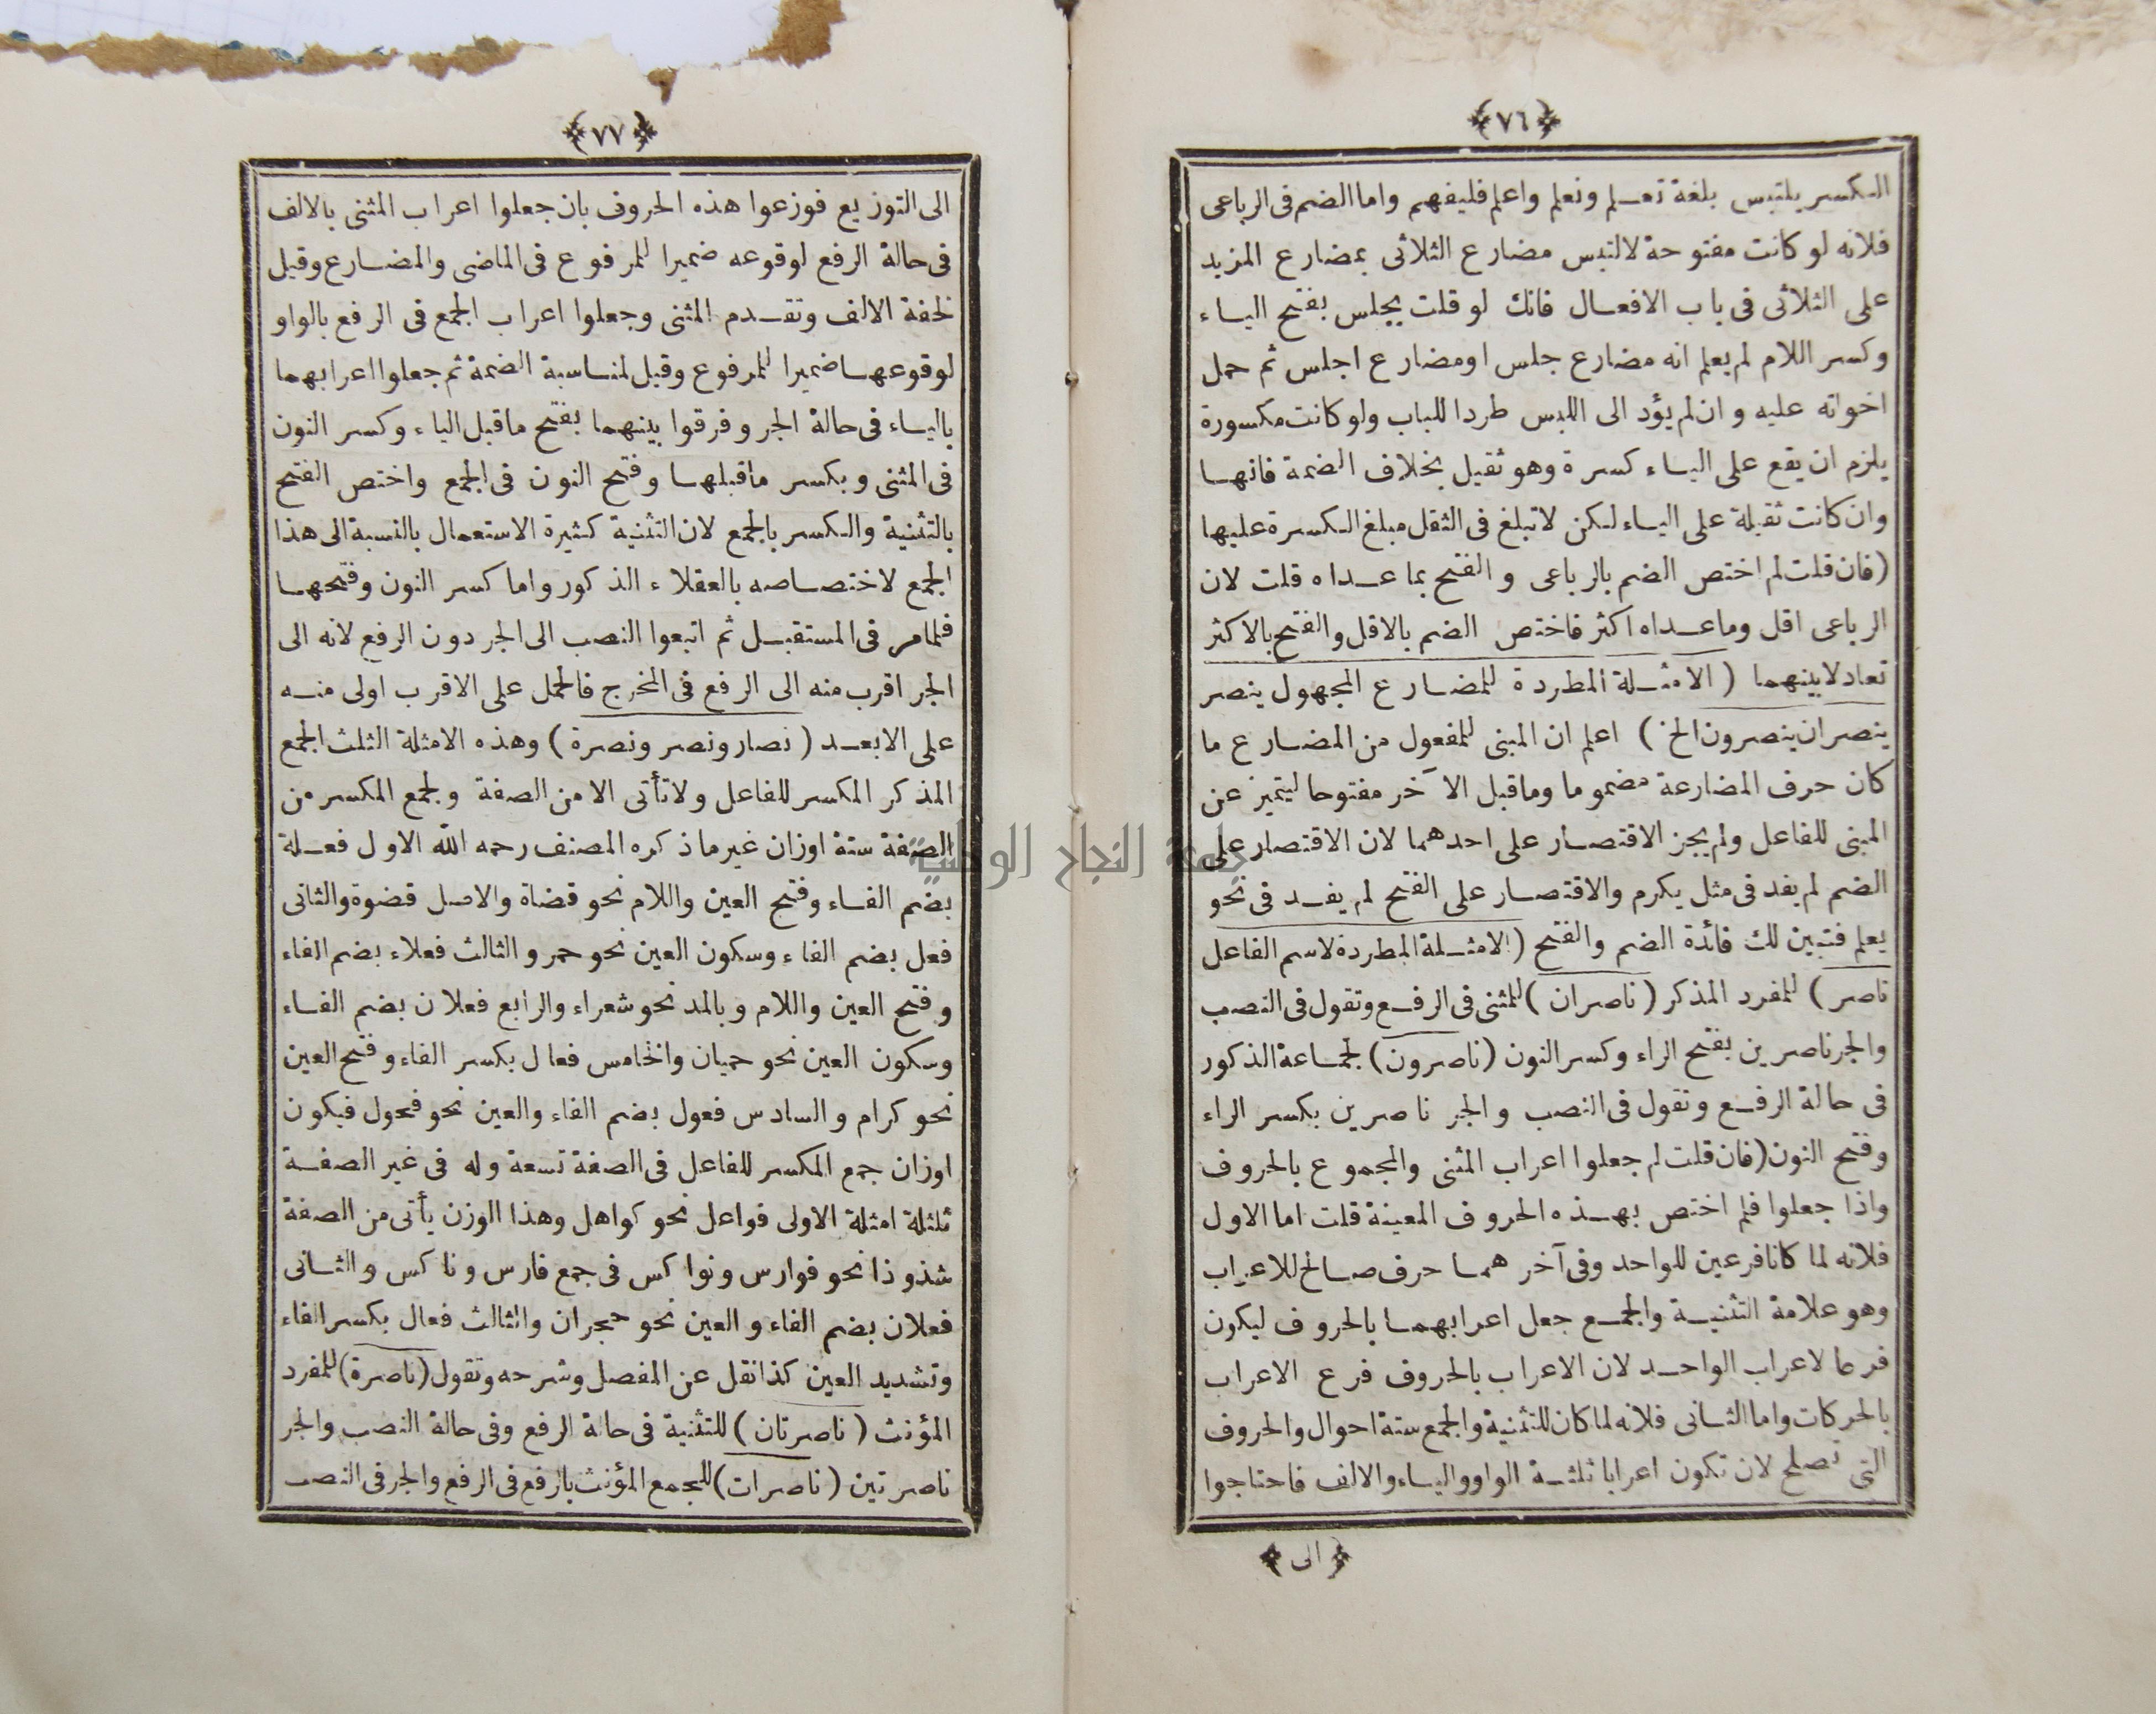 ﴿٧٦﴾
الكسر يلتبس بلغة تعلم ونعلم واعلم فليفهم واما الضم فى الرباعى
فلانه لو كانت مفتوحة لالتبس مضارع الثلاثى بمضارع المزيد
على الثلاثى فى باب الافعال فانك لو قلت يجلس بفتح الياء
وكسر اللام لم يعلم انه مضارع جلس او مضارع اجلس ثم حمل
اخواته عليه وان لم يؤد الى اللبس طردا للباب ولو كانت مكسورة
يلزم ان يقع على الياء كسرة وهو ثقيل بخلاف الضمة فانها
وان كانت ثقيلة على الياء لكن لا تبلغ فى الثقل مبلغ الكسرة عليها
(فان قلت لم اختص الضم بالرباعى والفتح بما عداه قلت لان
الرباعى اقل وما عداه اكثر فاختص الضم بالاقل والفتح بالاكثر
تعادلا بينهما (الامثلة المطردة للمضارع المجهول ينصر
ينصران ينصرون الخ) اعلم ان المبنى للمفعول من المضارع ما
كان حرف المضارعة مضموما وما قبل الآخر مفتوحا ليتميز عن
المبنى للفاعل ولم يجز الاقتصار على احدهما لان الاقتصار على
الضم لم يفد فى مثل يكرم والاقتصار على الفتح لم يفد فى نحو
يعلم فتبين لك فائدة الضم والفتح (الامثلة المطردة لاسم الفاعل
ناصر) للمفرد المذكر (ناصران) للمثنى فى الرفع وتقول فى النصب
والجر ناصرين بفتح الراء وكسر النون (ناصرون) لجماعة الذكور
فى حالة الرفع وتقول فى النصب والجر ناصرين بكسر الراء
وفتح النون (فان قلت لم جعلوا اعراب المثنى والمجموع بالحروف
واذا جعلوا فلم اختص بهذه الحروف المعينة قلت اما الاول
فلانه لما كانا فرعين للواحد وفى آخرهما حرف صالح للاعراب
وهو علامة التثنية والجمع جعل اعرابهما بالحروف ليكون
فرعا لاعراب الواحد لان الاعراب بالحروف فرع الاعراب
بالحركات واما الثانى فلانه لما كان للتثنية والجمع ستة احوال والحروف
التى تصلح لان تكون اعرابا ثلثة الواو والياء والالف فاحتاجوا
﴿الى﴾
﴿٧٧﴾
الى التوزيع فوزعوا هذه الحروف بان جعلوا اعراب المثنى بالالف
فى حالة الرفع لوقوعه ضميرا للمرفوع فى الماضى والمضارع وقيل
لخفة الالف وتقدم المثنى وجعلوا اعراب الجمع فى الرفع بالواو
لوقوعها ضميرا للمرفوع وقيل لمناسبة الضمة ثم جعلوا اعرابهما
بالياء فى حالة الجر وفرقوا بينهما بفتح ما قبل الياء وكسر النون
فى المثنى وبكسر ما قبلها وفتح النون فى الجمع واختص الفتح
بالتثنية والكسر بالجمع لان التثنية كثيرة الاستعمال بالنسبة الى هذا
الجمع لاختصاصه بالعقلاء الذكور واما كسر النون وفتحها
فلما مر فى المستقبل ثم اتبعوا النصب الى الجر دون الرفع لانه الى
الجر اقرب منه الى الرفع فى المخرج فالحمل على الاقرب اولى منه
على الابعد (نصار ونصر ونصرة) وهذه الامثلة الثلث الجمع
المذكر المكسر للفاعل ولا تأتى الا من الصفة ولجمع المكسر من
الصفة ستة اوزان غير ما ذكره المصنف رحمه الله الاول فعلة
بضم الفاء وفتح العين واللام نحو قضاة والاصل قضوة والثانى
فعل بضم الفاء وسكون العين نحو حمر والثالث فعلاء بضم الفاء
وفتح العين واللام وبالمد نحو شعراء والرابع فعلان بضم الفاء
وسكون العين نحو حميان والخامس فعال بكسر الفاء وفتح العين
نحو كرام والسادس فعول بضم الفاء والعين نحو فحول فيكون
اوزان جمع المكسر للفاعل فى الصفة تسعة وله فى غير الصفة
ثلثلة امثلة الاولى فواعل نحو كواهل وهذا الوزن يأتى من الصفة
شذوذا نحو فوارس ونواكس فى جمع فارس وناكس والثانى
فعلان بضم الفاء والعين نحو حجران والثالث فعال بكسر الفاء
وتشديد العين كذا نقل عن المفصل وشرحه وتقول (ناصرة) للمفرد
المؤنث (ناصرتان) للتثنية فى حالة الرفع وفى حالة النصب والجر
ناصرتين (ناصرات) للجمع المؤنث بالرفع فى الرفع والجر فى النصب
جامعة النجاح الوطنية